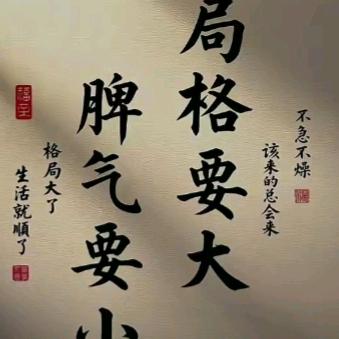 不急不燥
该来的总会来
局格要大
脾气要小
格局大了
生活就順了